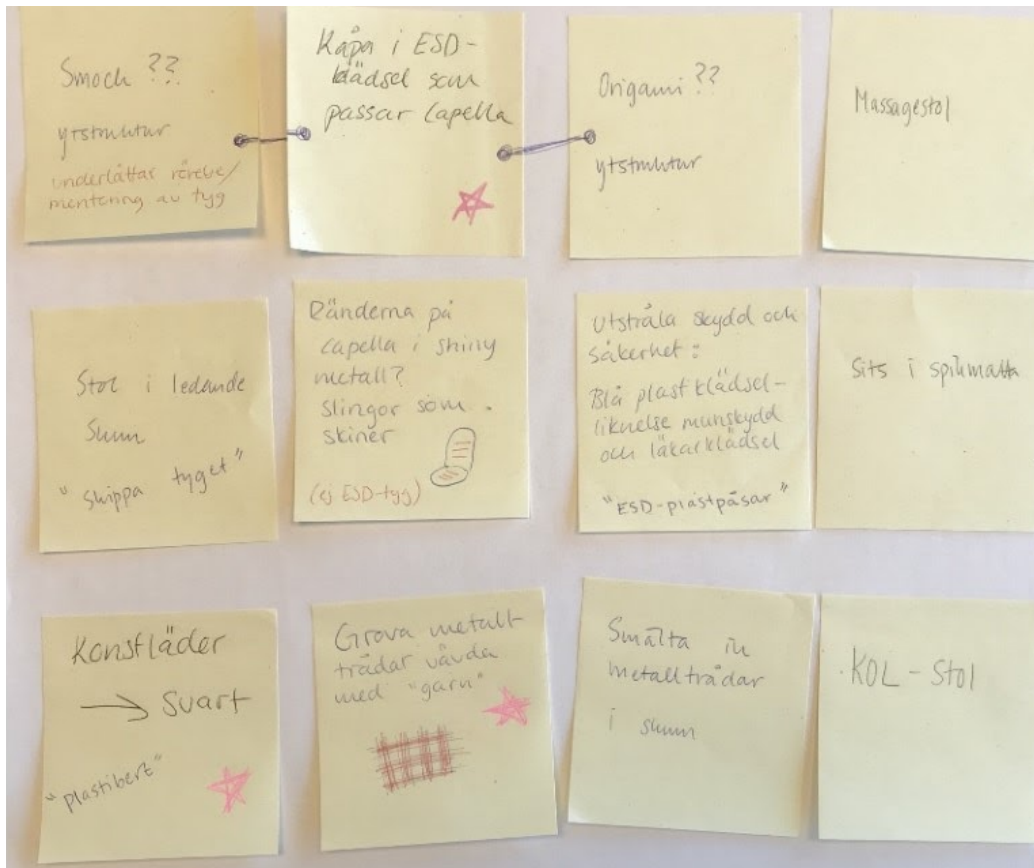 Smock ??
ytstruktur
underlättar rörelse/
mentering av tyg
Kåpa i ESD-
klädsel som
passar Capella
Origami ??
ytstruktur
Massagestol
Stol i ledande
Skum
"skippa tyget"
Ränderna på
Capella i shiny
metall?
Slingor som
skiner
(ej ESD-tyg)
Utstråla skydd och
säkerhet:
Blå plastklädsel-
liknelse munskydd
och läkarklädsel
"ESD-plastpåsar"
Sits i spikmatta
Konstläder
→ Svart
"plastibert"
Grova metall-
trådar vävda
med "garn"
Smälta in
metalltrådar
i skum
KOL-Stol